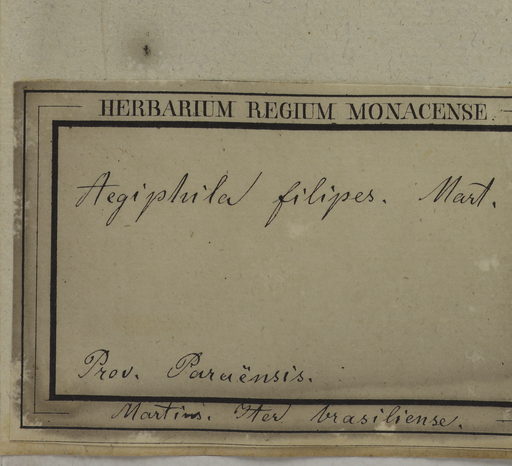 HERBARIUM REGIUM MONACENSE.
Aegiphila filipes. Mart.
Prov. Paraënsis.
Martius. Iter brasiliense.